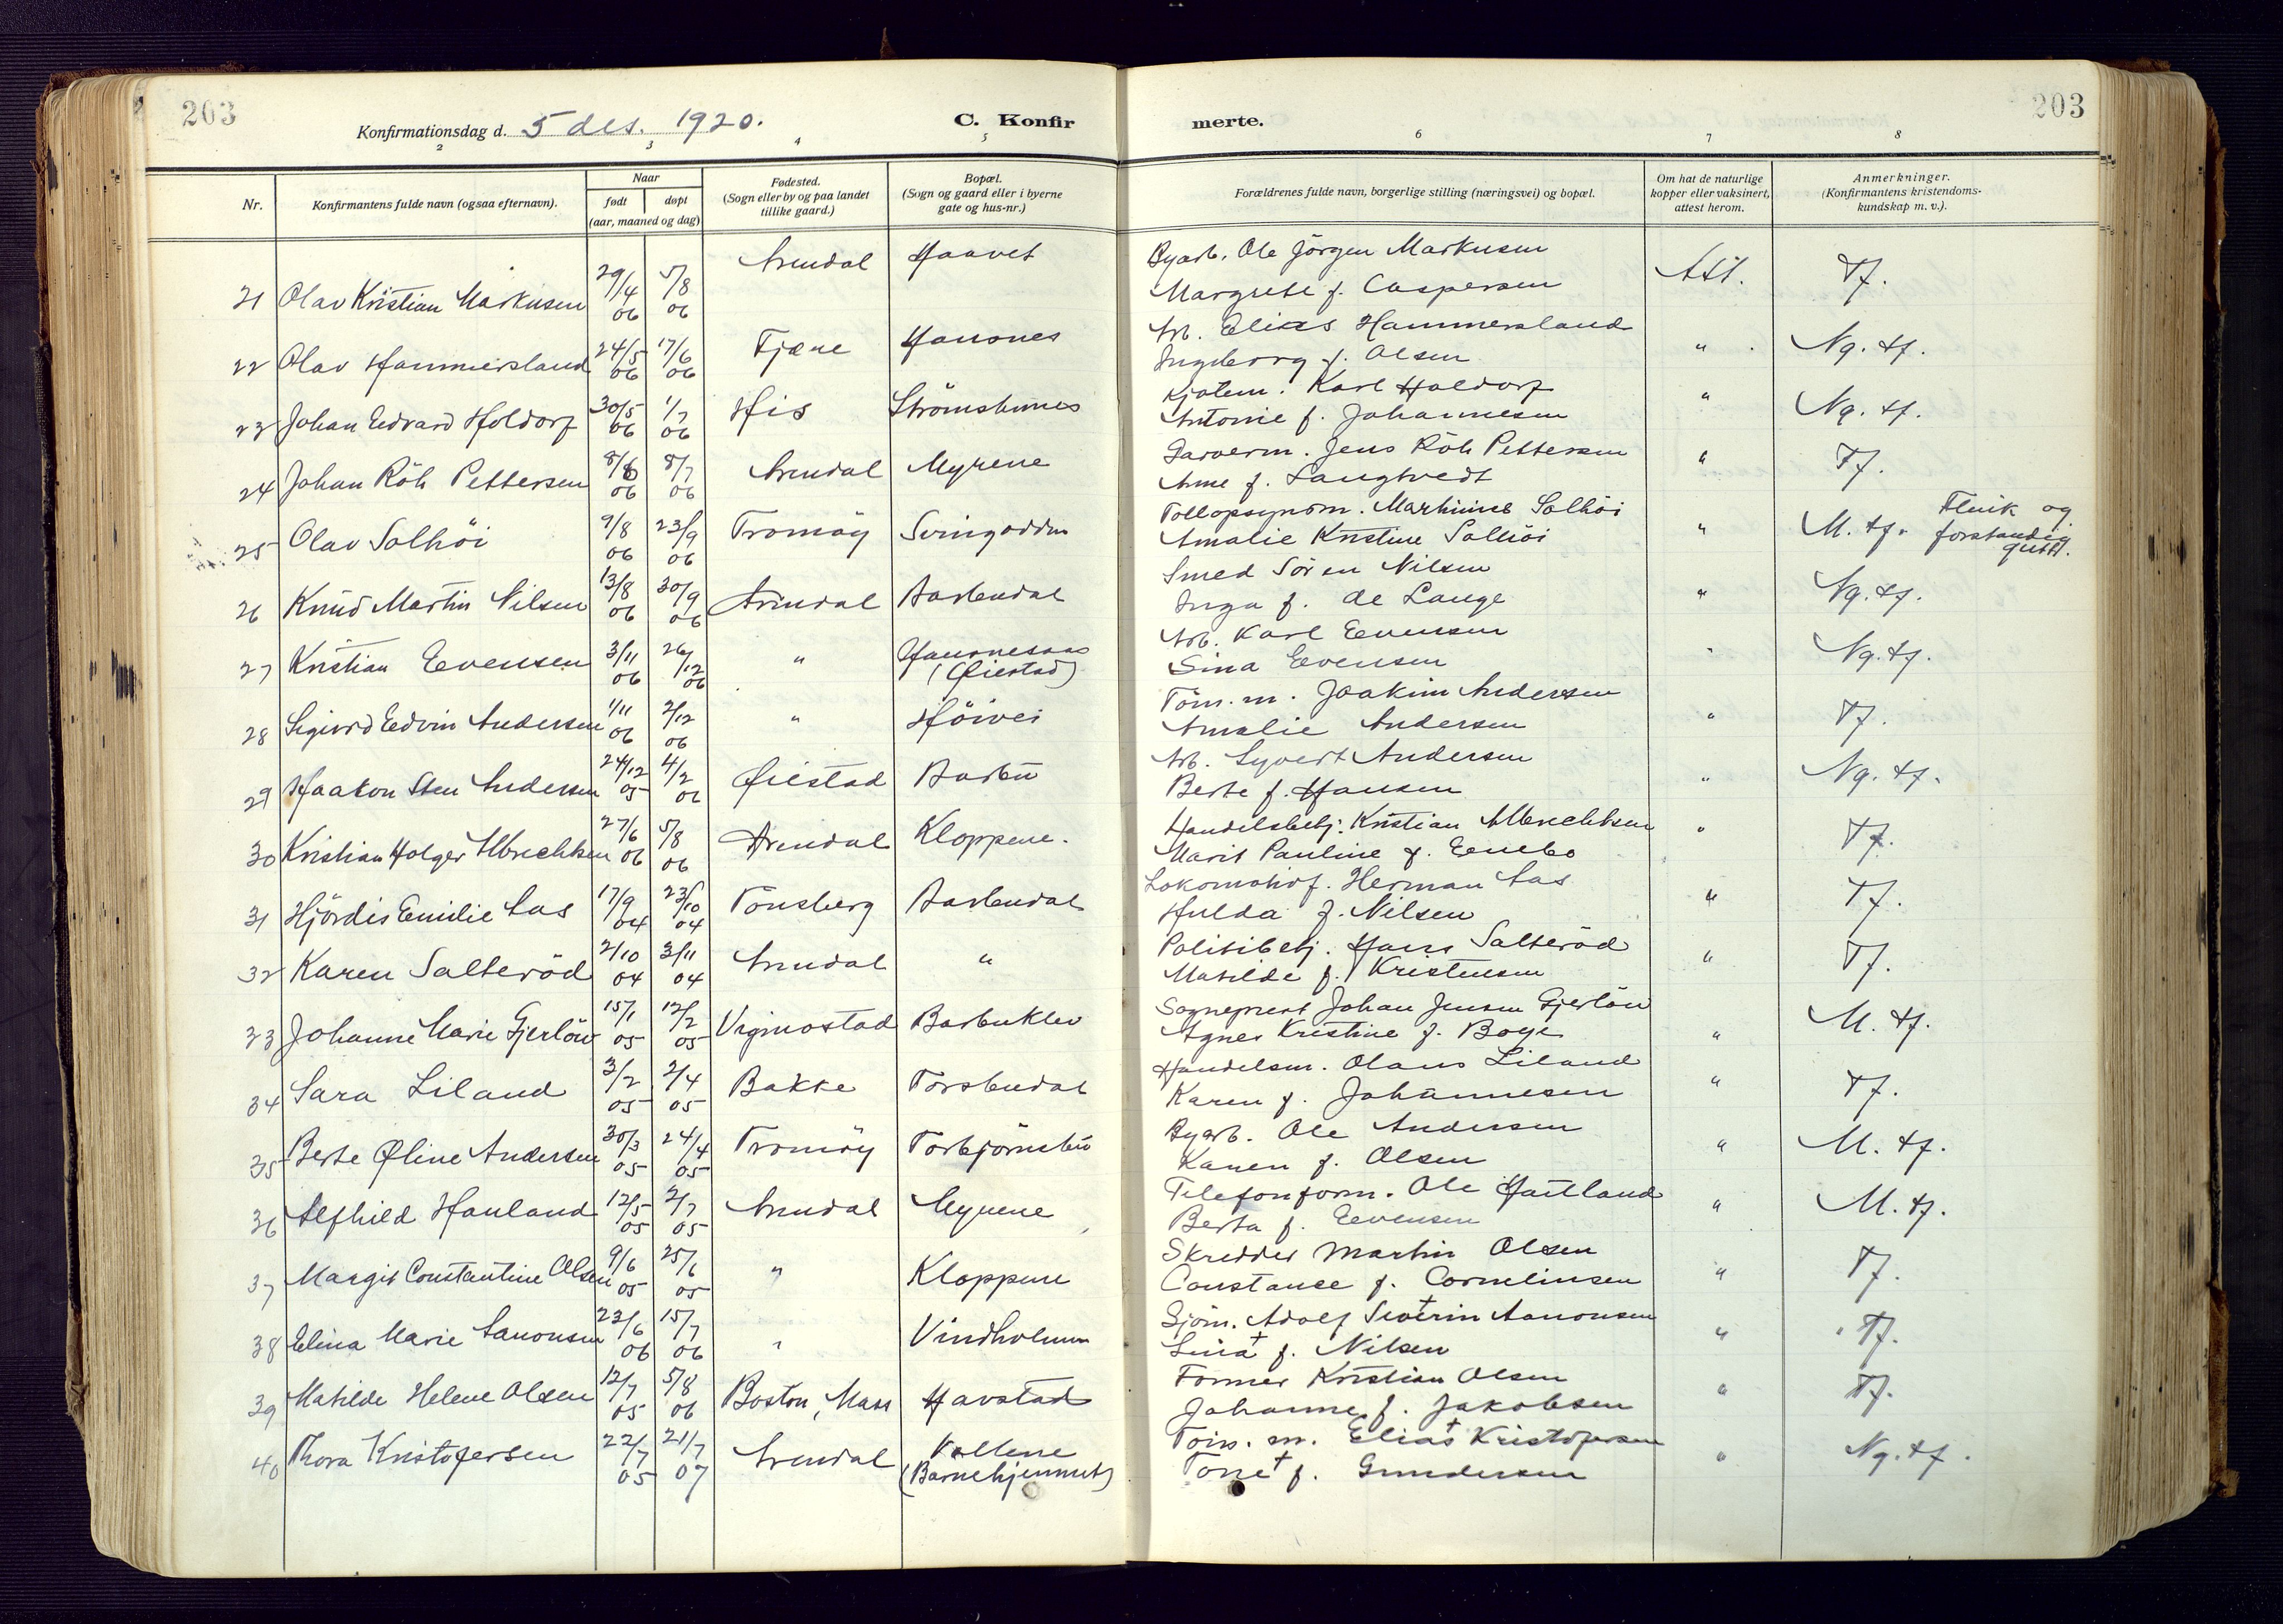 203
Konfirmationsdag d. 5 des. 1920.
C. Konfir
merte.
203
2 3 4 5 6 7 8
Nr.
Konfirmantens fulde navn (ogsaa efternavn).
Naar
født
døpt
(aar, maaned og dag)
Fødested.
(Sogn eller by og paa landet
tillike gaard.)
Bopæl.
(Sogn og gaard eller i byerne
gate og hus-nr.)
Forældrenes fulde navn, borgerlige stilling (næringsvei) og bopæl.
Om hat de naturlige
kopper eller vaksinert,
attest herom.
Anmerkninger.
(Konfirmantens kristendoms-
kundskap m. v.).
21 Olav Kristian Markusen 29/4 06 5/8 06 Arendal Haavet
Byarb. Ole Jörgen Markusen
Margrete f. Caspersen
Att. Tf.
22 Olav Hammersland 24/5 06 17/6 06 Fjære
Arb. Elias Hammersland
Ingeborg f. Olsen
" Ng. tf.
23 Johan Edvard Holdorf 30/5 06 1/7 06 His Strömsbunes
Karl Holdorf
Antonie f. Johannesen
" Ng. tf.
24 Johan Röh Pettersen 06 8/7 06 Arendal Myrene
Garverm. Jens Röh Pettersen
Anne f. Langtvedt
" Tf.
25 Olav Solhöi 9/8 06 23/9 06 Tromöy Svingodden
Tollopsynsm. Marthinus Solhöi
Amalie Kristine Solhöi
" M. tf. Flink og
forstandig
gutt.
26 Knud Martin Nilsen 13/8 06 30/9 06 Arendal Barbudal
Smed Sören Nilsen
Inga f. de Lange
" Ng. tf.
27 Kristian Evensen 3/11 06 26/12 06 "
(Øiestad)
Arb. Karl Evensen
Sina Evensen
" Ng. tf.
28 Sigurd Edvin Andersen 1/11 06 2/12 06 " Höivei
Töm. m. Joakim Andersen
Amalie Andersen
" Tf.
29 Haakon Sten Andersen 24/12 05 4/2 06 Øiestad Barbu
Arb. Syvert Andersen
Berte f. Hansen
" Ng. tf.
30 Kristian Holger Albrechtsen 27/6 06 5/8 06 Arendal Kloppene.
Handelsbetj. Kristian Albrechtsen
Marit Pauline f. Eenebo
" Tf.
31 Hjördis Emilie Aas 17/9 04 23/10 04 Tönsberg Barbudal
Lokomotivf. Herman Aas
Hulda f. Nilsen
" Tf.
32 Karen Salteröd 2/10 04 3/11 04 Arendal "
Politibetj. Hans Salteröd
Matilde f. Kristensen
" Tf.
33 Johanne Marie Gjerlöw 15/1 05 12/2 05 Vigmostad Barbuklev
Sogneprest Johan Jensen Gjerlöw
Agnes Kristine f. Boye
" M. tf.
34 Sara Liland 3/2 05 2/4 05 Bakke Torsbudal
Handelsm. Olaus Liland
Karen f. Johannesen
" Tf.
35 Berte Oline Andersen 30/3 05 24/4 05 Tromöy Torbjörnsbu
Byarb. Ole Andersen
Karen f. Olsen
" M. tf.
36 Alfhild Hauland 12/5 05 2/7 05 Arendal Myrene
Telefonform. Ole Hauland
Berta f. Evensen
" M. tf.
37 Margit Constantine Olsen 9/6 05 25/6 05 " Kloppene
Skredder Martin Olsen
Constance f. Corneliusen
" Tf.
38 Elina Marie Aanonsen 23/6 06 15/7 06 " Vindholmen
Sjöm. Adolf Severin Aanonsen
Lina† f. Nilsen
" Tf.
39 Matilde Helene Olsen 12/7 05 5/8 06 Boston, Mass Havstad
Former Kristian Olsen
Johanne f. Jakobsen
" Tf.
40 Thora Kristofersen 22/7 05 21/7 07 Arendal Vollene
(Barnehjemmet)
Töm. m. Elias† Kristofersen
Tone† f. Gundersen
" Ng. tf.